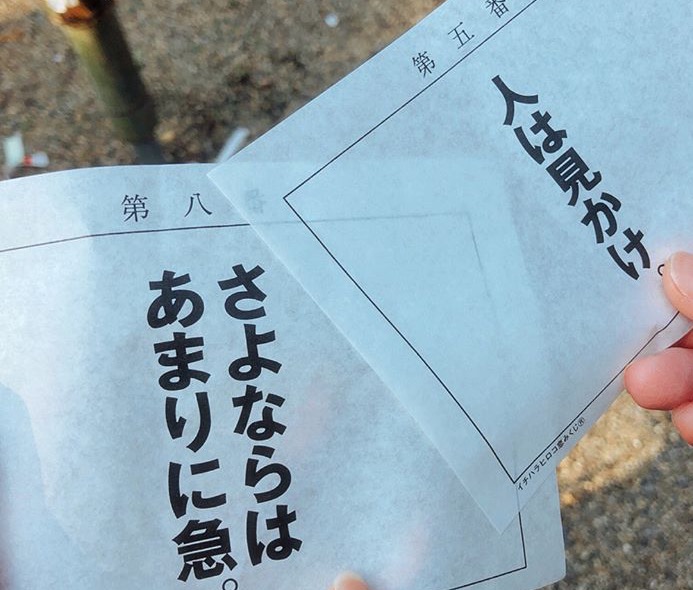 第五番
人は見かけ。
イチハラヒロコ恋みくじ®
第八番
さよならは
あまりに急。